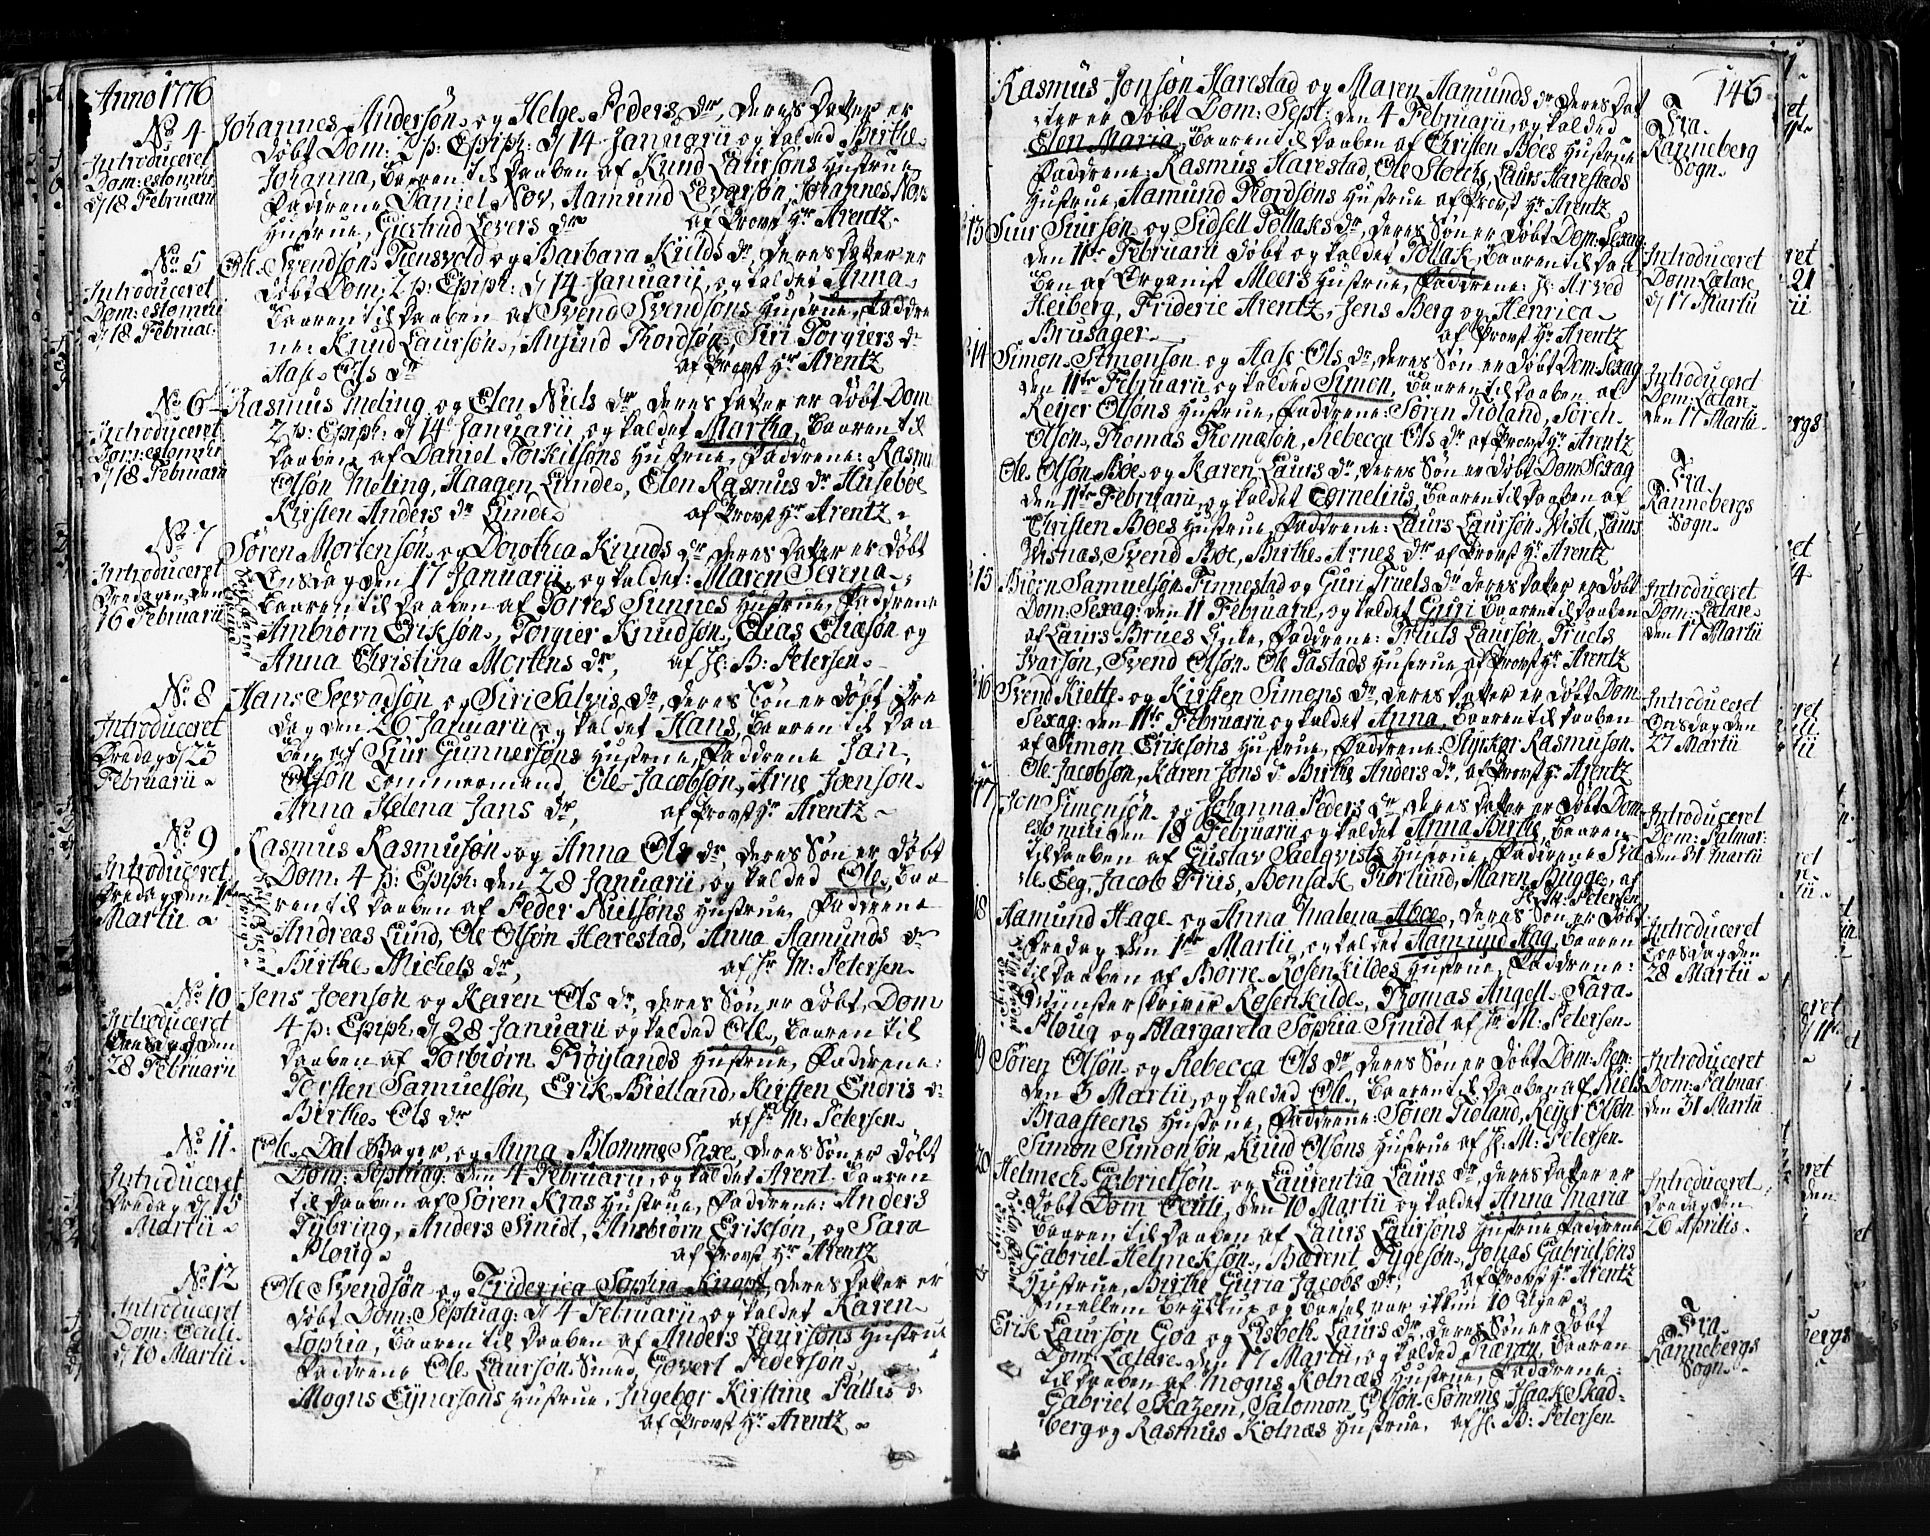 Anno 1776
No 4
Introduceret
Dom: estomihi
d 18 Februarii
Johannes Andersøn og Helge Peders dr, deres datter er
døbt Dom: 2 p: Epiph: d 14 Januarii og kalded Birthe
Johanna, baaren til daaben af Knud Laursøns hustrue
Faddrene Daniel Nov, Aamund Eversøn, Johannes Nors
hustrue, Giertrud Levers dr af Provst Hr Arentz
No 5
Introduceret
Dom: estomihi
d 18 Februar:
Ole Svendsøn Tiensvold og Barbara Kields dr, deres datter er
døbt Dom: 2 p: Epiph: d 14 Januarii, og kaldet Anna
baaren til daaben af Svend Svendsøns hustrue, Faddre
ne: Knud Laursøn, Ansind Thordsøn, Siri Torgiers dr
Aase Ols dr af Provst Hr Arentz
No 6
Introduceret
Dom: estomihi
d 18 Februarii
Rasmus Meling og Elen Niels dr, deres datter er døbt Dom
2 p: Epiph: d 14 Januarii, og kaldet Martha, baaren til
daaben af Daniel Torkilsøns hustrue, Faddrene: Rasmus
Olsøn Meling, Haagen Lunde, Elen Rasmus dr Husebøe
Kirsten Anders dr Lunde af Provst Hr Arentz
No 7
Introduceret
Fredagen den
16 Februarii
Søren Mortensøn og Dorothea Knuds dr, deres datter er døbt
Onsdag den 17 Januarii, og kaldet: Maren Serena
baaren til daaben af Torres Sunnes hustrue, Faddrene
Ambiørn Eriksøn, Torgier Knudsøn, Elias Eliæsøn og
Anna Christina Mortens dr, af H: B: Petersen
No 8
Introduceret
Fredag d 23
Februarii
Hans Seevadsøn og Siri Salvis dr, deres søn er døbt Fre
dag den 26 Januarii og kaldet Hans, baaren til daa
ben af Siur Gunnersøns hustrue, Faddrene Jan
Olsøn Commermand Ole Jacobsøn, Arne Joensøn
Anna Helena Jans dr, af Provst Hr Arentz
No 9
Introduceret
Fredagen den 1ste
Martii
Rasmus Rasmusøn og Anna Ols dr, deres søn er døbt
Dom: 4 p: Epiph: den 28 Januarii, og kaldet Ole, baa
ren til daaben af Peder Nielsøns hustrue, Faddrene
Andreas Lund, Ole Olsøn Herrestad, Anna Aamunds dr
Birthe Michels dr, af Hr M: Petersen
No 10
Introduceret
Onsdagen den
28 Februarii
Jens Joensøn og Karen Ols dr, deres søn er døbt, Dom
4 p: Epiph: d 28 Januarii og kaldet Ole, baaren til
daaben af Torbiørn Frøylands hustrue, Faddrene:
Torsten Samuelsøn, Erik Bielland, Kirsten Endris dr
Birthe Ols dr af Hr M: Petersen
No 11
Introduceret
Fredag d 15
Martii
Ole Dal Bager, og Anna Blomme Saxe, deres søn er døbt
Dom: Septuag: den 4 Februarii, og kaldet Arent, baaren
til daaben af Søren Kras hustrue, Faddrene: Anders
Tybring, Anders Smidt, Ambiørn Eriksøn, og Sara
Ploug af Provst Hr Arentz
No 12
Introduceret
Dom: Oculi
d 10 Martii
Ole Svendsøn og Friderica Sophia Knapf, deres datter er
døbt Dom: Septuag: d 4 Februarii, og kaldet Karen
Sophia, baaren til daaben af Anders Laursøns hustrue
Faddrene Ole Laursøn Smed, Govert Pedersøn
Mogns Ejnersøns hustrue, Ingebor Kirstine Palles dr
af Provst Hr Arentz
146
Rasmus Jonsøn Harestad og Maren Aamunds dr deres dat
ter er døbt Dom: Sept: den 4 Februarii, og kalded
Elen Maria, baaren til daaben af Christen Boes hustrue
Faddrene: Rasmus Harestad, Ole Stochs, Laurs Harestads
hustrue, Aamund Thordsøns hustrue af Provst Hr Arentz
Fra
Ranneberg
Sogn
13
Siur Siursøn og Sidsell Tollaks dr, deres søn er døbt Dom: Sexag:
den 11te Februarii døbt og kaldet Tollak, baaren til daa
ben af Organist Meers hustrue, Faddrene: H: Arved
Heiberg, Frideric Arentz, Jens Berg og Henrica
Brusager af Provst Hr Arentz
Introduceret
Dom: Lætare
d 17 Martii
14
Simon Simonsøn og Aase Ols dr, deres søn er døbt Dom: Sexag
den 11te Februarii og kaldet Simon, baaren til daaben af
Reyer Olsøns hustrue, Faddrene: Søren Tidland, Søren
Olsøn, Thomas Thomæsøn, Rebecca Ols dr af Provst Hr Arentz
Introduceret
Dom: Lætare
den 17 Martii
Ole Olsøn Bøe og Karen Laurs dr, deres søn er døbt Dom: Sexag
den 11te Februarii, og kaldet Cornelius, baaren til daaben af
Christen Boes hustrue, Faddrene: Laurs Laursøn Viste, Laurs
Visnæs, Svend Bøe, Birthe Arnes dr af Provst Hr Arentz
Fra
Rannebergs
Sogn
15
Biørn Samuelsøn Finnestad og Guri Truels dr deres datter er døbt
Dom: Sexag: den 11 Februarii, og kaldet Guri baaren til daaben
af Laurs Brues Enke, Faddrene: Truels Laursøn, Truels
Ivarsøn, Svend Olsøn Ole Tastads hustrue af Provst Hr Arentz
Introduceret
Dom: Lætare
den 17 Martii
16
Svend Kiette og Kirsten Simons dr, deres datter er døbt Dom
Sexag: den 11te Februarii og kaldet Anna, baaren til daaben
af Simon Eriksøns hustrue, Faddrene: Styrkor Rasmusøn
Ole Jacobsøn, Karen Jons dr Birthe Anders dr, af Provst Hr Arentz
Introduceret
Onsdag den
27 Martii
17
Jon Simonsøn og Johanna Peders dr, deres datter er døbt Dom
estomihi den 18 Februarii og kaldet Anna Birthe, baaren
til daaben af Gustav Saelqvists hustrue, Faddrene
Eeg, Jacob Friis, Bonsak Fiorlund, Maren Bugge, af
Hr M: Petersen
Introduceret
Dom: Palmar:
den 31 Martii
18
Aamund Hage og Anna Malena Aboe, deres søn er døbt
Fredag den 1ste Martii, og kaldet Aamund Hag, baaren
til daaben af Børre Rosenkildes hustrue, Faddrene:
Mynsterskriver Rosenkilde, Thomas Angell, Sara
Ploug og Margareta Sophia Smidt af Hr M: Petersen
Introduceret
Torsdag den
28 Martii
19
Søren Olsøn og Rebecca Ols dr, deres søn er døbt Dom: Rem:
den 3 Martii, og kalded Ole, baaren til daaben af Niels
Braasteens hustrue, Faddrene: Søren Tidland, Reyer Olsøn
Simon Simonsøn, Knud Olsøns hustrue af H: M: Petersen
Introduceret
Dom: Palmar
den 31 Martii
20
Helmeck Gabrielsøn og Laurentia Laurs dr, deres datter er
døbt Dom Oculi, den 10 Martii og kaldet Anna Maria
baaren til daaben af Laurs Laursøns hustrue Faddrene
Gabriel Helmeksøn, Bærent Tygesøn, Jonas Gabrielsøns
hustrue, Birthe Guria Jacobs dr, af Provst Hr Arentz
imellem Bryllup og Barsel var ikkun 10 Uger
Introduceret
Fredag den
26 Aprilis
Erik Laursøn Goa og Lisbeth Laurs dr, deres søn er døbt
Dom: Lætare den 17 Martii, og kalded Rærey, baaren
til daaben af Mogns Kolnæs hustrue, Faddrene:
Gabriel Skazem, Salomon Olsøn Sømme, Isaak Skad
berg og Rasmus Kolnæs hustrue, af H: B: Petersen
Fra
Rannebergs
Sogn